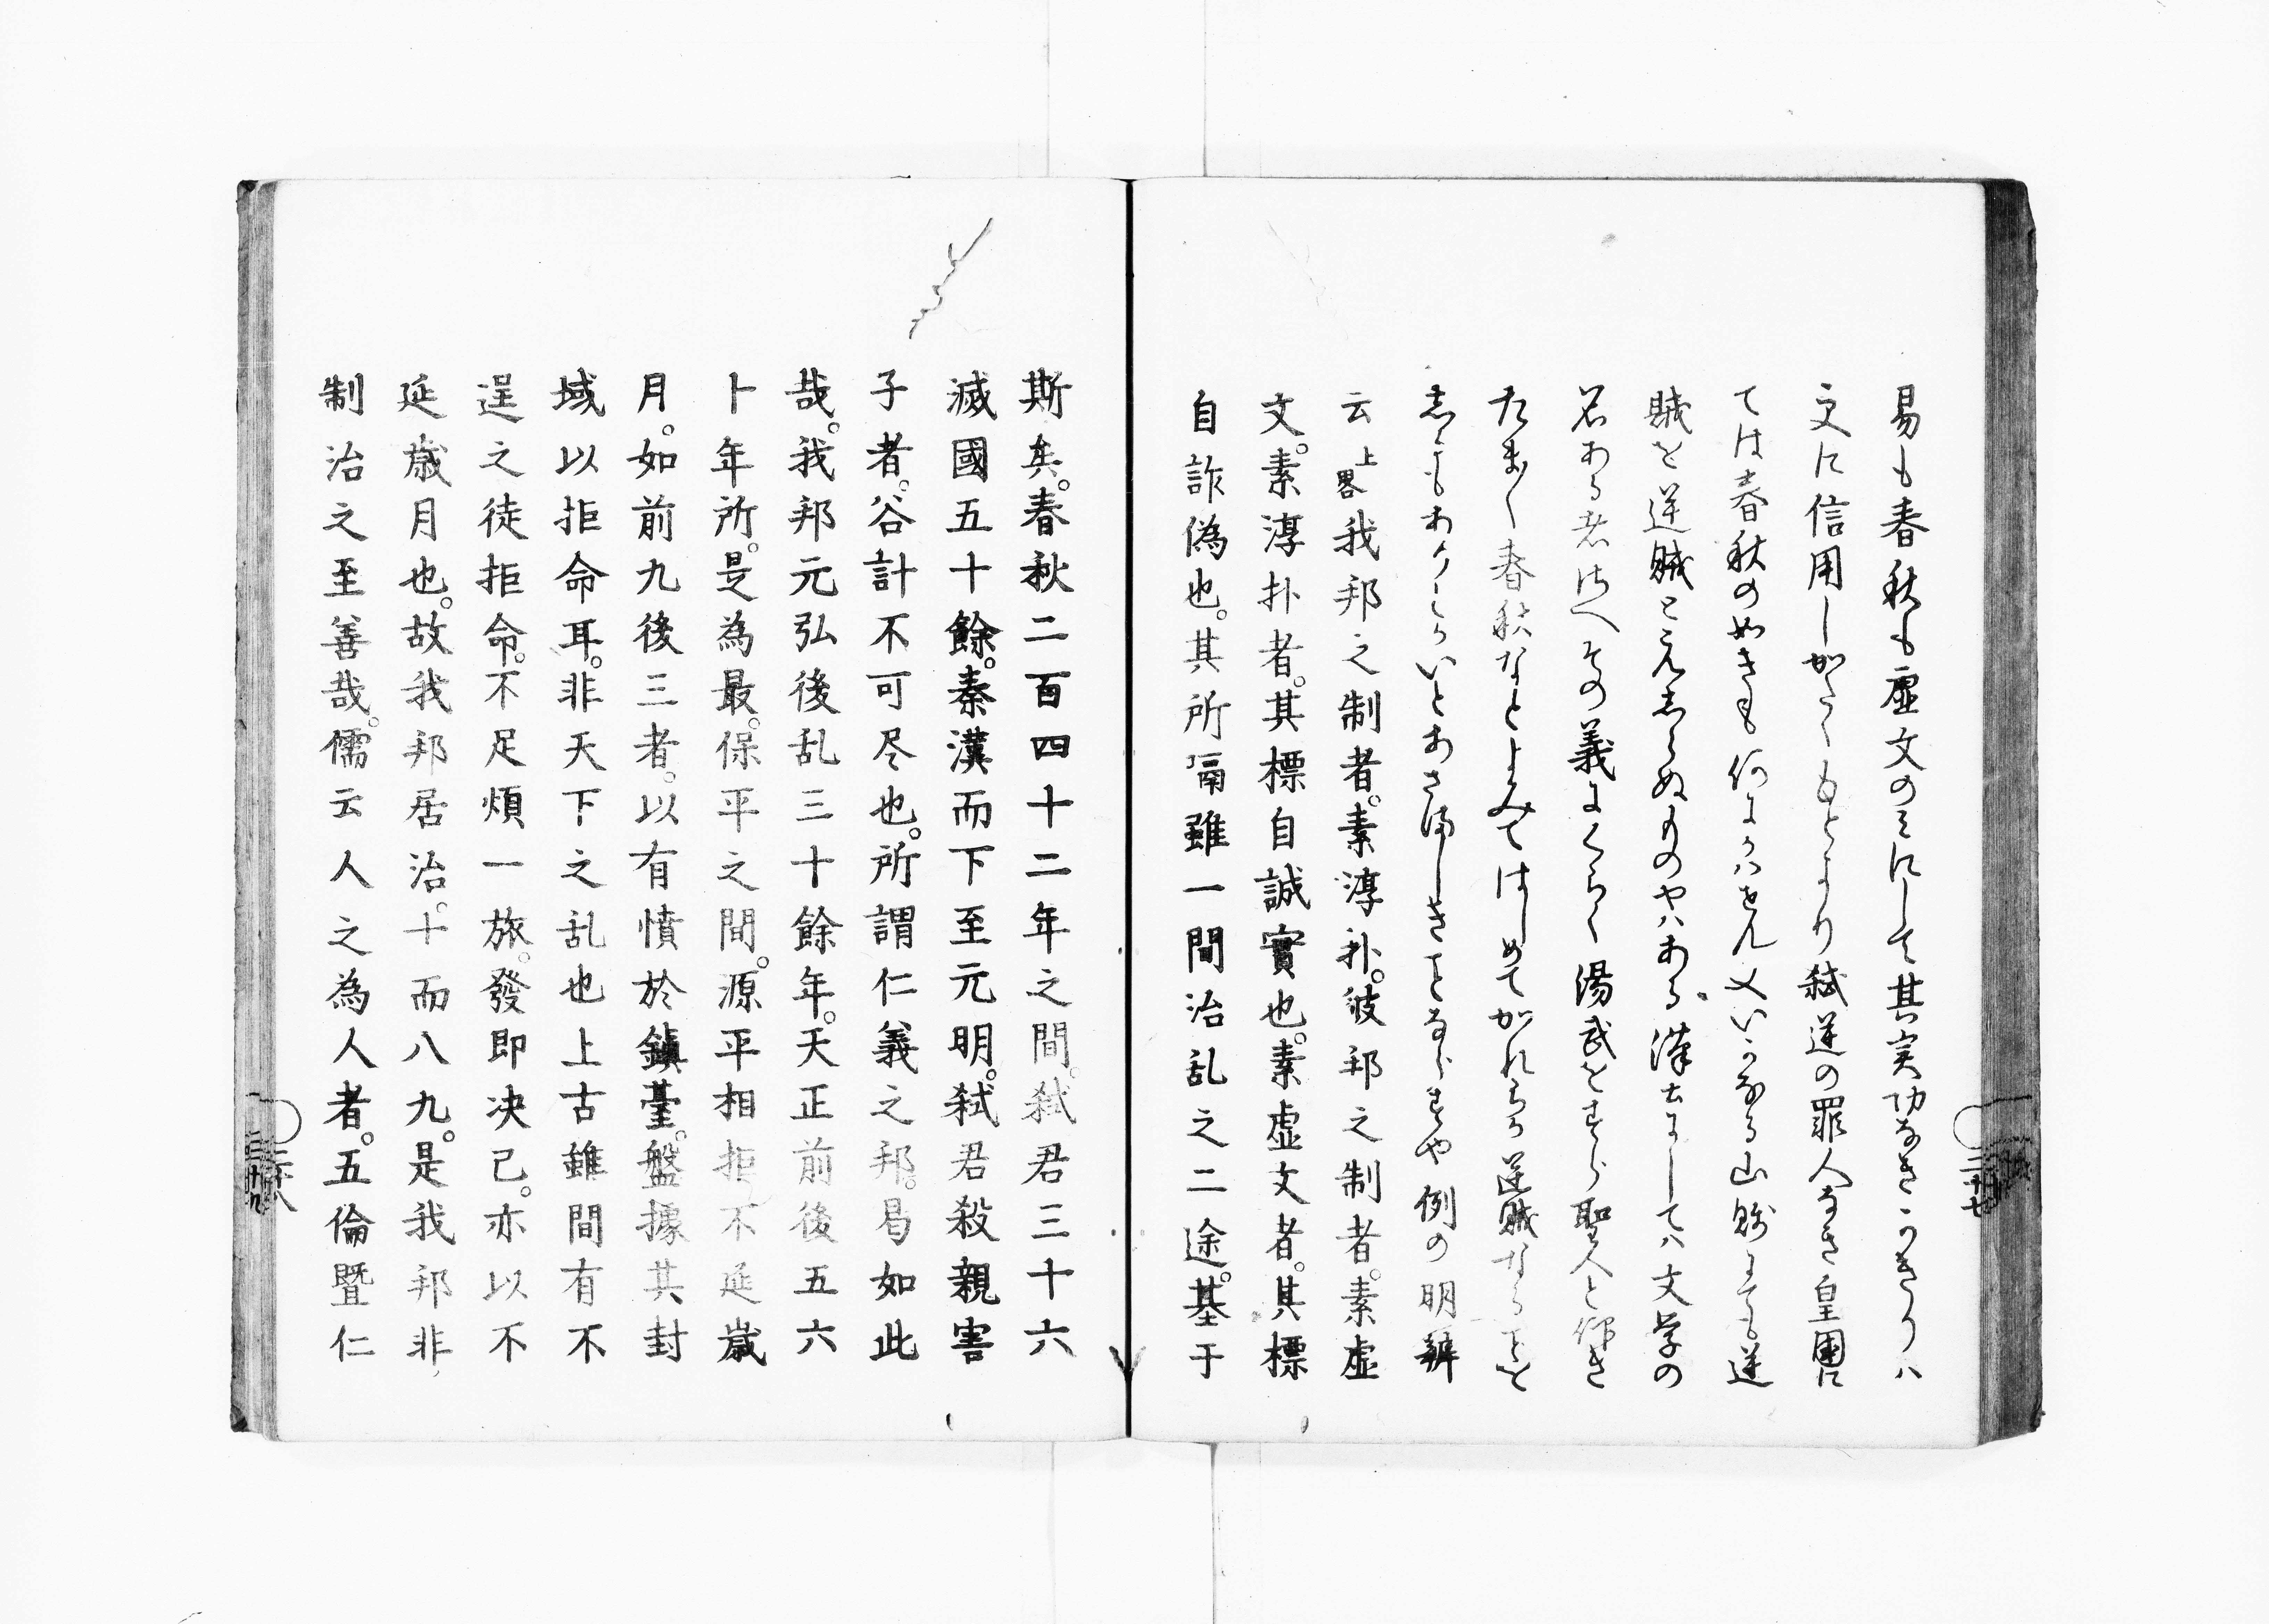 易も春秋も虚文のミにして其実功なきかきりハ
文に信用しかたくもとより弑逆の罪人なき皇国に
ては春秋の如きも何にかハせん又いかなる山賊にても逆
賊を逆賊とえしらぬものやハある漢土にしてハ文学の
名ある者さへその義にくらく湯武をすら聖人と仰き
たまく春秋なとよみてはしめてかれらか逆賊なることを
しるもありといとあさましきことならすや例の明辨
云上畧我邦之制者。素淳朴。彼邦之制者。素虚
文。素淳朴者。其標自誠實也。素虚文者。其標
自詐偽也。其所隔雖一間治乱之二途。基于
斯矣。春秋二百四十二年之間。弑君三十六
滅國五十餘。秦漢而下至元明。弑君殺親害
子者。谷計不可尽也。所謂仁義之邦。曷如此
哉。我邦元弘後乱三十餘年。天正前後五六
卜年所。是為最。保平之間。源平相拒不延歳
月。如前九後三者。以有憤於鎮臺。盤據其封
域以拒命耳。非天下之乱也上古雖間有不
逞之徒拒命。不足煩一旅。發即决已。亦以不
延歳月也。故我邦居治。十而八九。是我邦非
制治之至善哉。儒云人之為人者。五倫暨仁